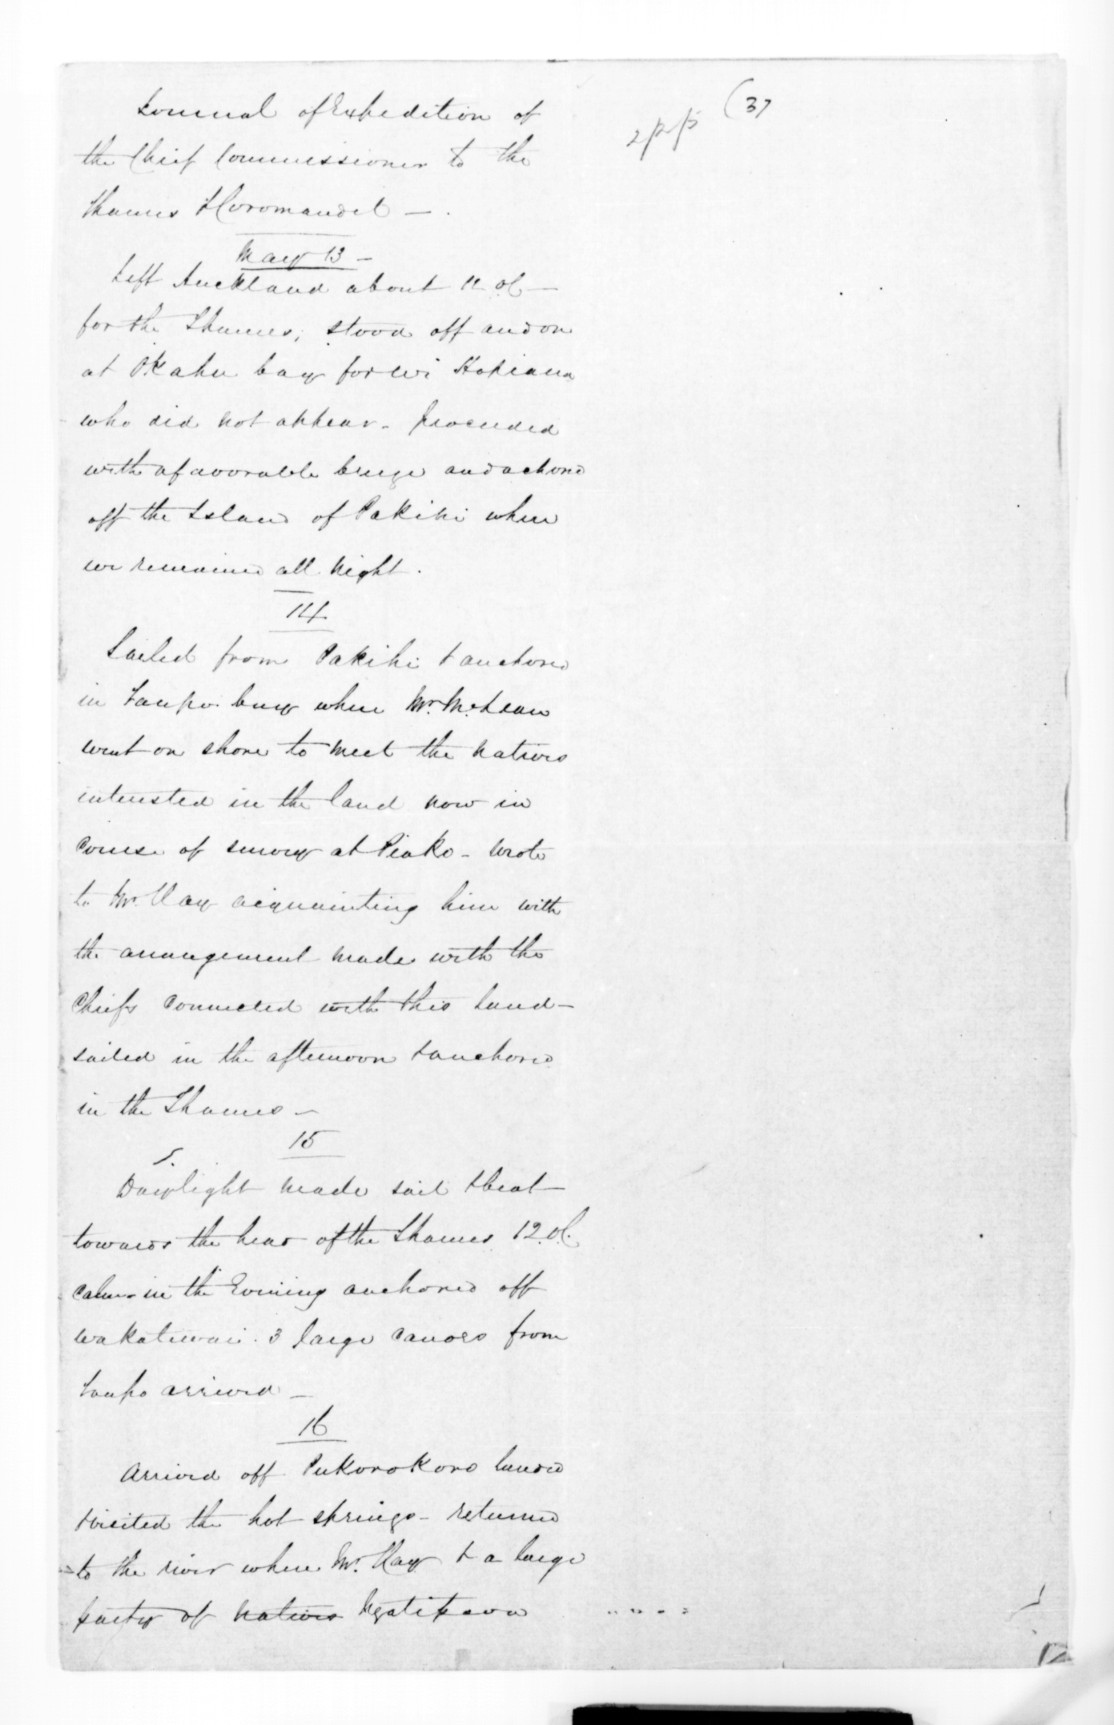 Journal of Expedition of
the Chief Commissioner to the
Thames & Coromandel —
(37
2pp/5
May 13 —
Left Auckland about 11 oC —
for the Thames, stood off and on
at Okahu bay for Wi Hopiana
who did not appear - proceeded
with a favorable breeze and achored
off the Island of Pakihi where
we remained all night.
14
Sailed from Pakihi & anchored
in Taupo bay where Mr. McLean
went on shore to meet the natives
interested in the land now in
course of survey at Piako - wrote
to Mr. Hay acquainting him with
the arrangement made with the
Chiefs connected with this land —
sailed in the afternoon & anchored
in the Thames —
15
Daylight made sail & beat
towards the head of the Thames 12 oC.
calm in the Evening anchored off
Wakatiwai. 3 large canoes from
Taupo arrived —
16
Arrived off Pukorokoro landed
& visited the hot springs - returned
to the river where Mr. Hay & a large
party of natives Ngatipaoa